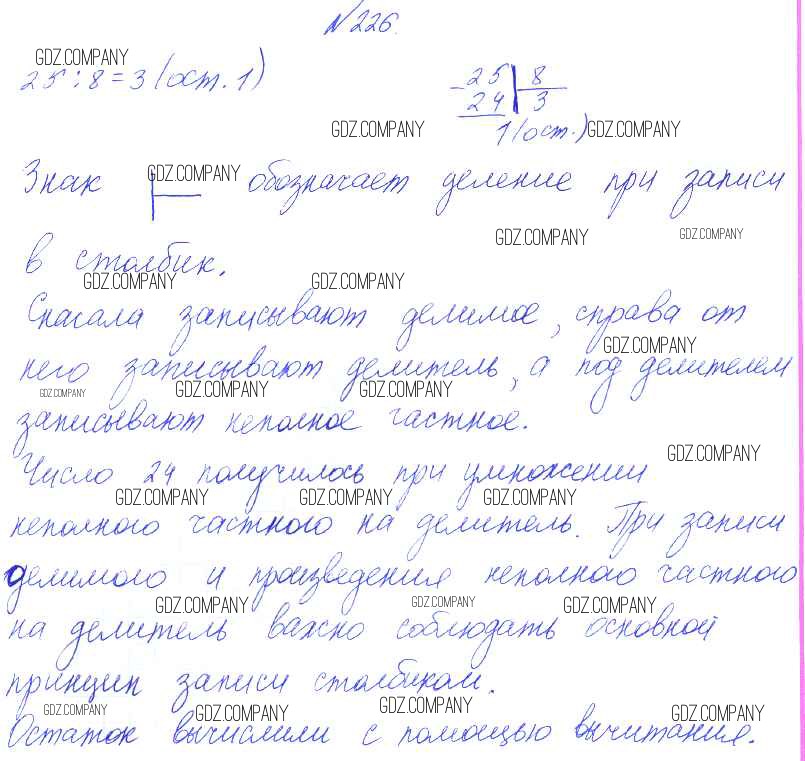 №226.
GDZ.COMPANY
25 : 8 = 3 (ост. 1)
- 25 | 8
24 3
1 (ост.)
GDZ.COMPANY GDZ.COMPANY
Знак GDZ.COMPANY обозначает деление при записи
GDZ.COMPANY GDZ.COMPANY
в столбик.
GDZ.COMPANY GDZ.COMPANY
Сначала записывают делимое, справа от
GDZ.COMPANY
него записывают делитель, а под делителем
GDZ.COMPANY GDZ.COMPANY GDZ.COMPANY
записывают неполное частное.
GDZ.COMPANY
Число 24 получилось при умножении
GDZ.COMPANY GDZ.COMPANY GDZ.COMPANY
неполного частного на делитель. При записи
делимого и произведения неполного частного
GDZ.COMPANY GDZ.COMPANY GDZ.COMPANY
на делитель важно соблюдать основной
принцип записи столбиком.
GDZ.COMPANY GDZ.COMPANY GDZ.COMPANY GDZ.COMPANY
Остаток вычислили с помощью вычитания.